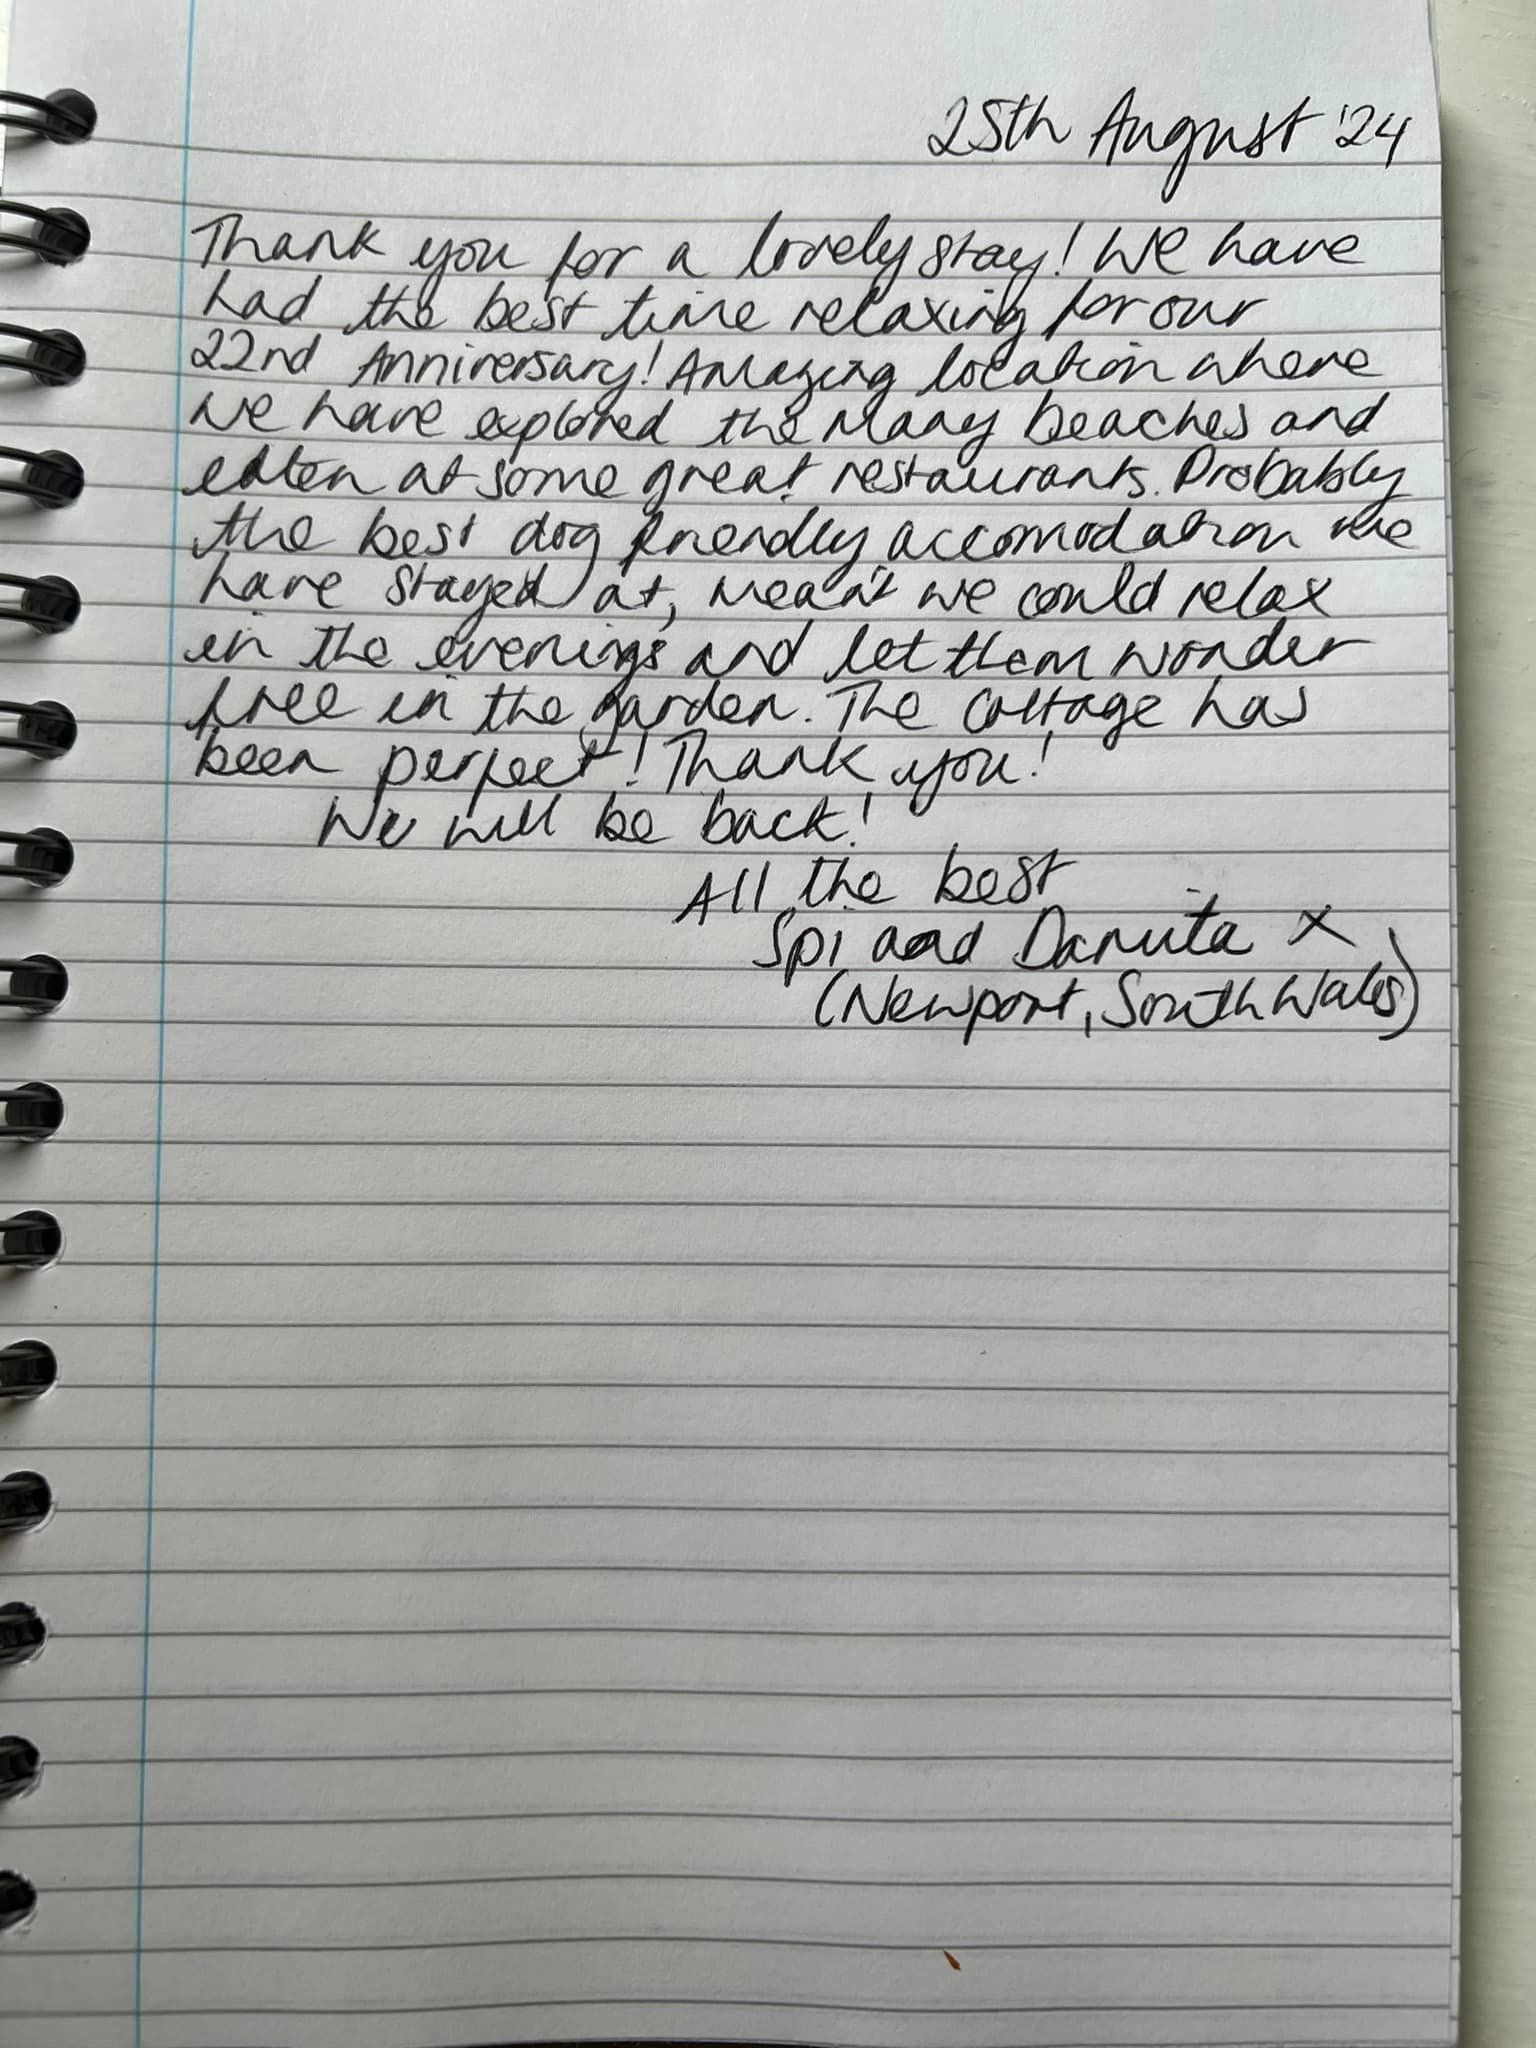 25th August '24
Thank you for a lovely stay! We have
had the best time relaxing for our
22nd Anniversary! Amazing location where
we have explored the many beaches and
eaten at some great restaurants. Probably
the best dog friendly accomodation we
have stayed at, meant we could relax
in the evenings and let them wonder
free in the garden. The cottage has
been perfect! Thank you!
We will be back!
All the best
Spi and Danuta x
(Newport, South Wales)